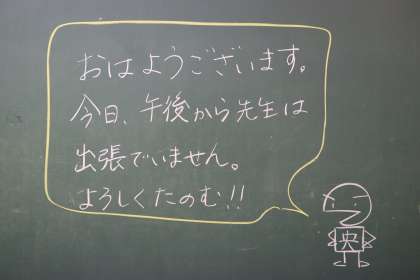 おはようございます。
今日、午後から先生は
出張でいません。
よろしくたのむ!!
央